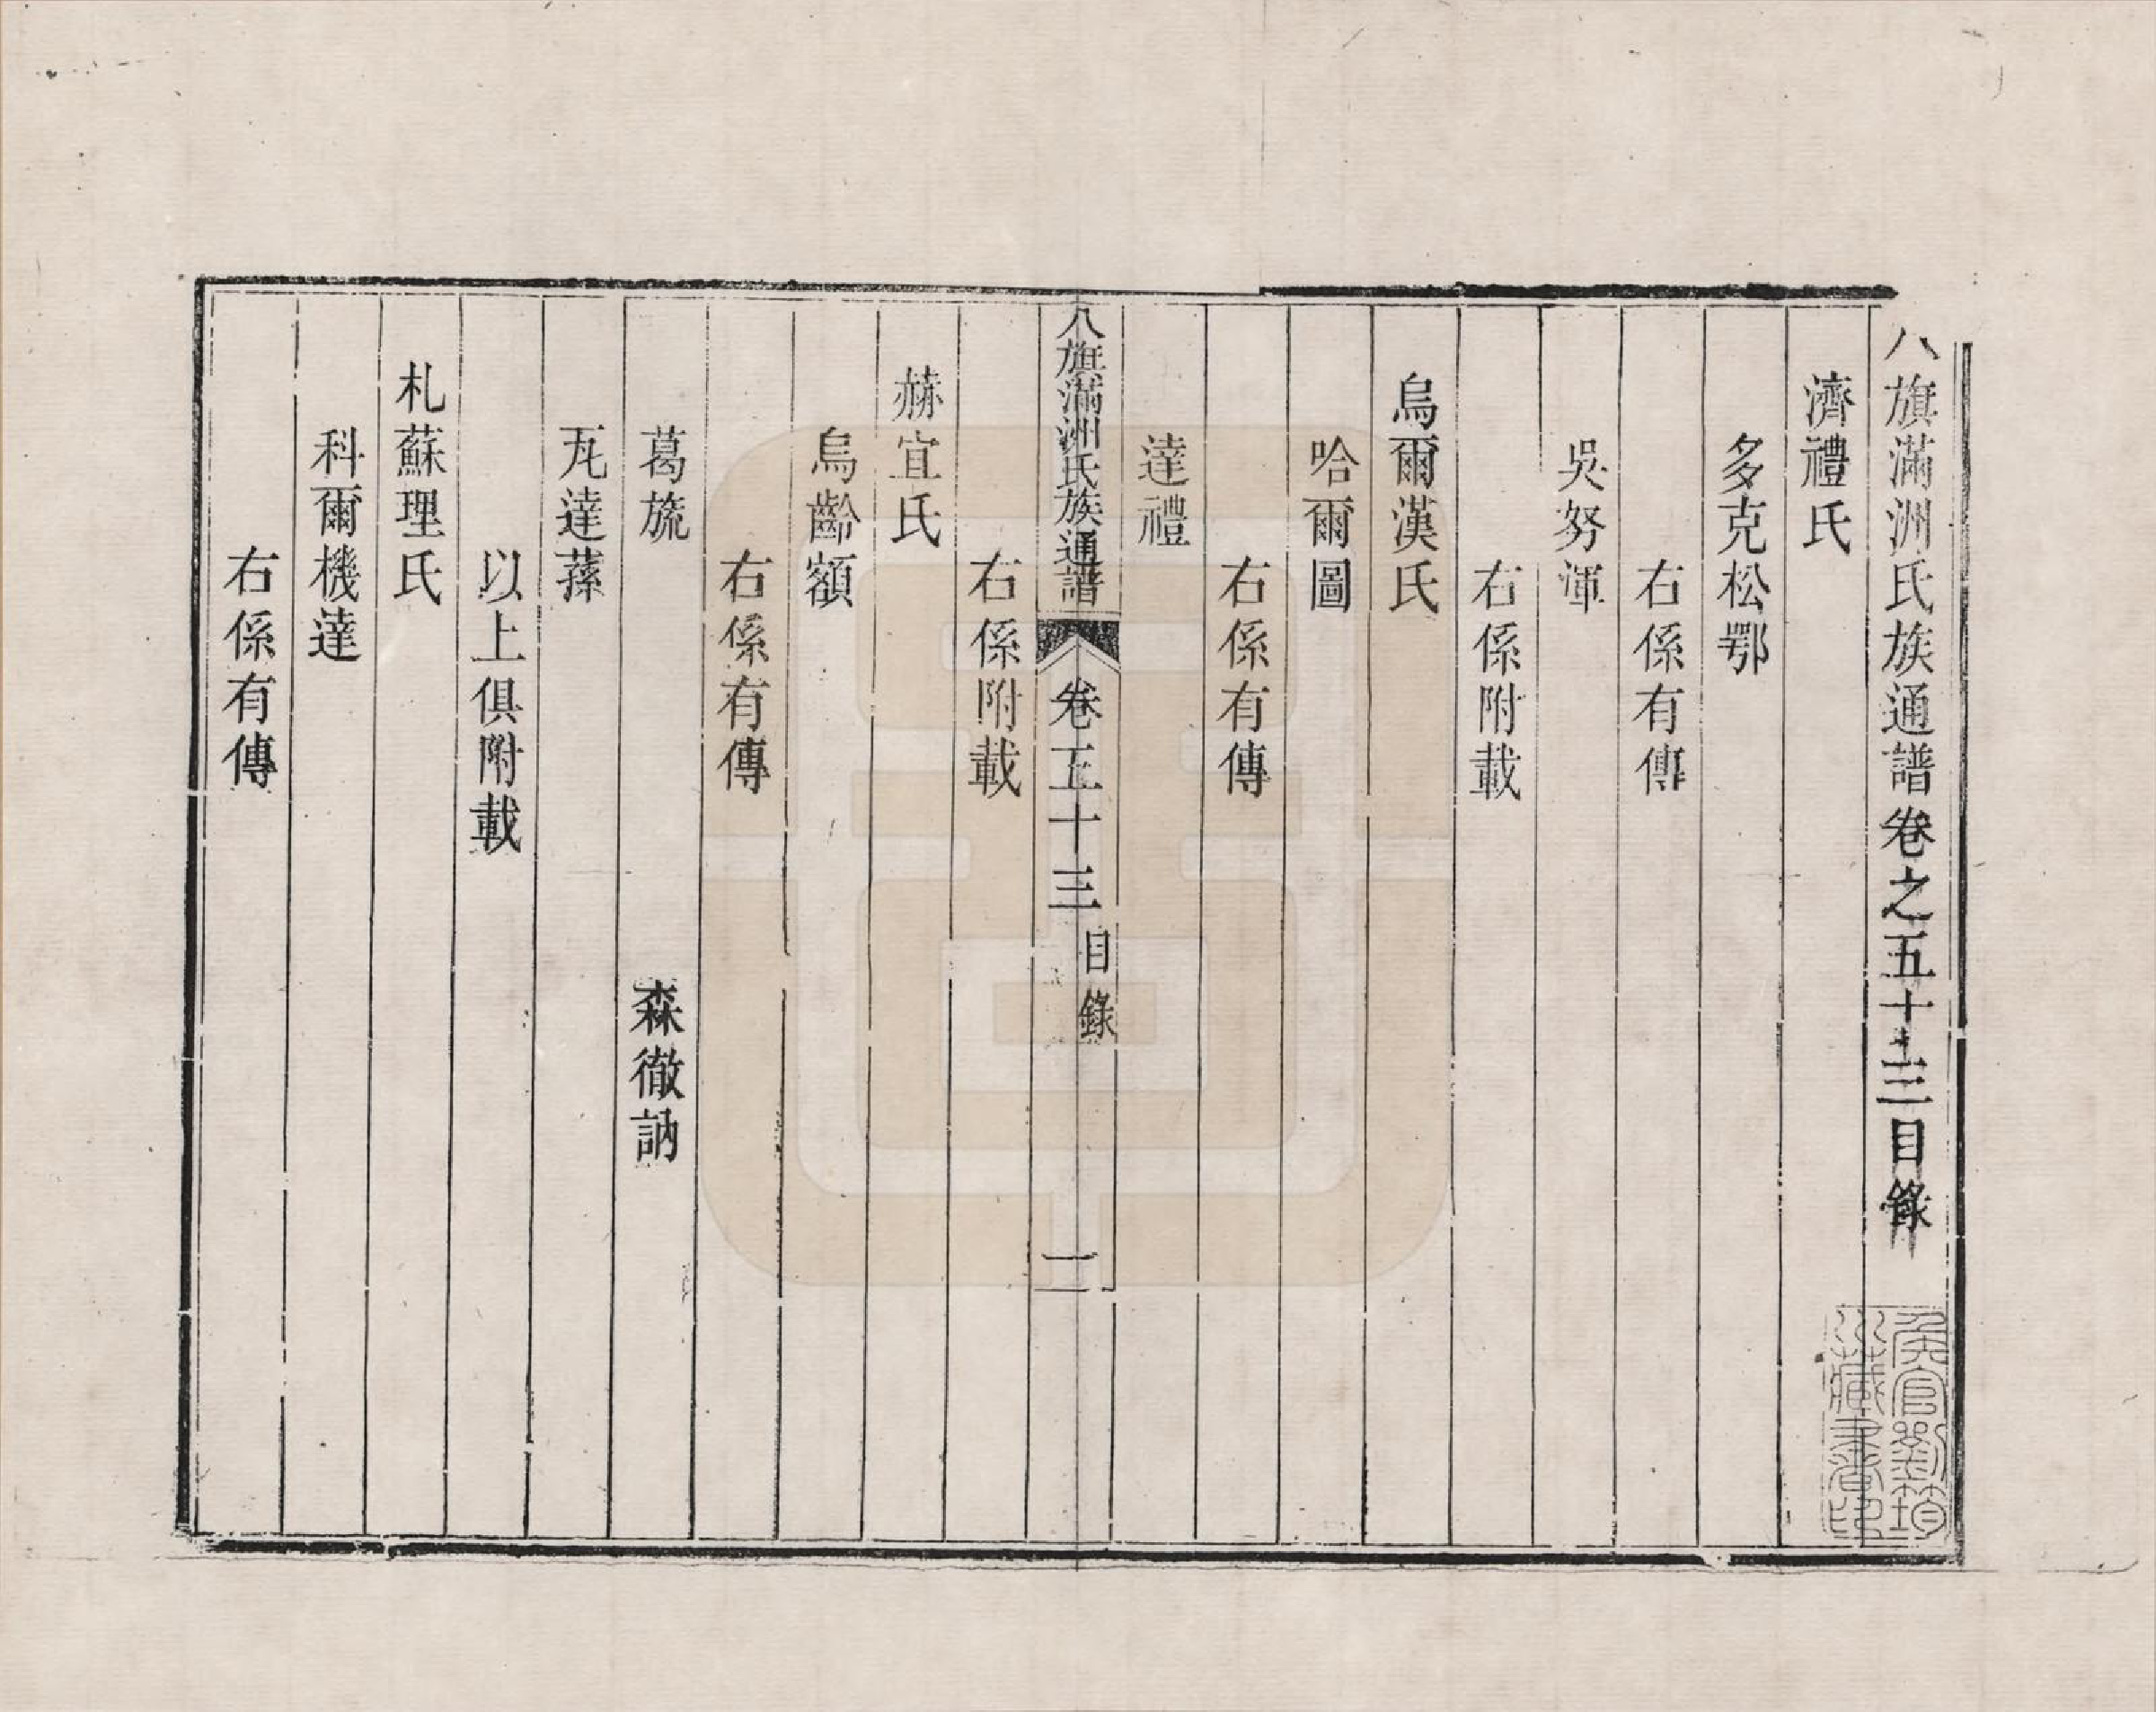 八旗滿洲氏族通譜卷之五十三目錄
濟禮氏
多克松鄂
右係有傳
吳努渾
右係附載
烏爾漢氏
哈爾圖
右係有傳
達禮
八旗滿洲氏族通譜 卷五十三 目錄 一
右係附載
赫宜氏
烏齡額
右係有傳
葛旒 森徹訥
瓦達蓀
以上俱附載
札蘇理氏
科爾機達
右係有傳
侯官劉筠
川藏書印